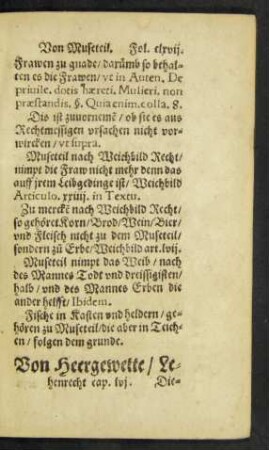 Von Museteil. Fol. clxvij.
Frawen zu gnade/ darümb so behal-
ten es die Frawen/ vt in Auten. De
priuile. dotis hæreti. Mulieri. non
præstandis. §. Quia enim. colla. 8.
Dis ist zuuernemē/ ob sie es aus
Rechtmessigen vrsachen nicht vor-
wircken/ vt supra.
Museteil nach Weichbild Recht/
nimpt die Fraw nicht mehr denn das
auff jrem Leibgedinge ist/ Weichbild
Articulo. xxiij. in Textu.
Zu merckē nach Weichbild Recht/
so gehöret Korn/ Brod/ Wein/ Bier/
vnd Fleisch nicht zu dem Museteil/
sondern zü Erbe/ Weichbild art. lvij.
Museteil nimpt das Weib/ nach
des Mannes Todt vnd dreissigisten/
halb/ vnd des Mannes Erben die
ander helfft/ Ibidem.
Fische in Kasten vnd heldern/ ge-
hören zu Museteil/ die aber in Teich-
en/ folgen dem grunde.
Von Heergewette/ Le-
henrecht cap. lvj. Die-